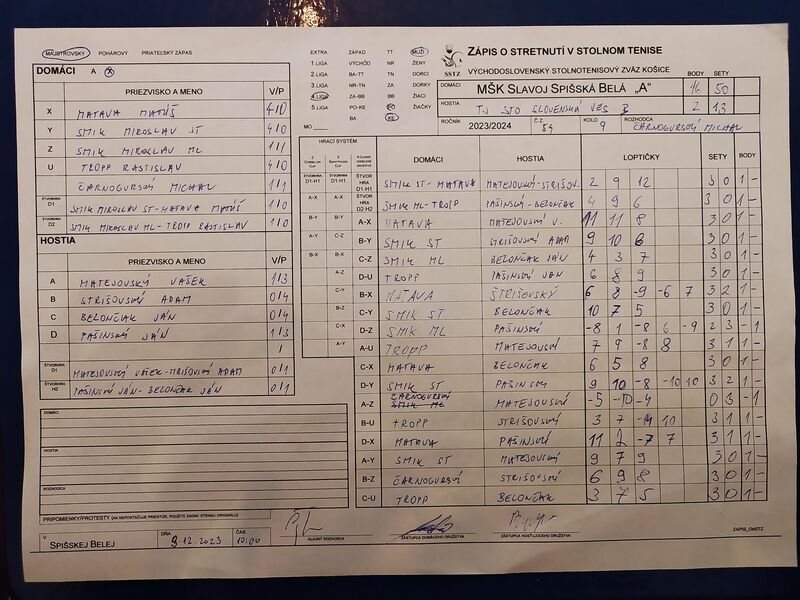 MAJSTROVSKÝ POHÁROVÝ PRIATEĽSKÝ ZÁPAS
DOMÁCI A X
PRIEZVISKO A MENO V/P
X MATAVA MATÚŠ 4/0
Y SMIK MIROSLAV ST 4/0
Z SMIK MIROSLAV ML 1/1
U TROPP RASTISLAV 4/0
ČARNOGURSKÝ MICHAL 1/1
ŠTVORHRA D1 SMIK MIROSLAV ST-MATAVA MATÚŠ 1/0
ŠTVORHRA D2 SMIK MIROSLAV ML-TROPP RASTISLAV 1/0
HOSTIA
PRIEZVISKO A MENO V/P
A MATEJOVSKÝ VAŠEK 1/3
B STRIŠOVSKÝ ADAM 0/4
C BELONČAK JÁN 0/4
D PAŠINSKÝ JÁN 1/3
/
ŠTVORHRA D1 MATEJOVSKÝ VAŠEK-STRIŠOVSKÝ ADAM 0/1
ŠTVORHRA H2 PAŠINSKÝ JÁN-BELONČAK JÁN 0/1
DOMÁCI
HOSTIA
ROZHODCA
PRIPOMIENKY/PROTESTY (AK NEPOSTAČUJE PRIESTOR, POUŽITE ZADNÚ STRANU ORIGINÁLU)
V SPIŠSKEJ BELEJ DŇA 9.12.2023 ČAS 10:00
HLAVNÝ ROZHODCA ZÁSTUPCA DOMÁCEHO DRUŽSTVA ZÁSTUPCA HOSŤUJÚCEHO DRUŽSTVA ZAPIS_OMSTZ
EXTRA ZÁPAD TT MUŽI
1.LIGA VÝCHOD NR ŽENY
2.LIGA BA-TT TN DORCI
3.LIGA NR-TN ZA DORKY
4.LIGA ZA-BB BB ŽIACI
5.LIGA PO-KE PO ŽIAČKY
MO BA KE
SSTZ
ZÁPIS O STRETNUTÍ V STOLNOM TENISE
VÝCHODOSLOVENSKÝ STOLNOTENISOVÝ ZVÄZ KOŠICE
BODY SETY
DOMÁCI MŠK SLAVOJ SPIŠSKÁ BELÁ „A" 16 50
HOSTIA TJ STO SLOVENSKÁ VES B 2 13
ROČNÍK 2023/2024 Č.Z. 54 KOLO 9 ROZHODCA ČARNOGURSKÝ MICHAL
HRACÍ SYSTÉM
DOMÁCI HOSTIA LOPTIČKY SETY BODY
ŠTVORHRA D1-H1 SMIK ST-MATAVA MATEJOVSKÝ-STRIŠOV. 2 9 12 3 0 1 -
ŠTVORHRA D2-H2 SMIK ML-TROPP PAŠINSKÝ-BELONČAK 4 9 6 3 0 1 -
A-X MATAVA MATEJOVSKÝ V. 11 11 8 3 0 1 -
B-Y SMIK ST STRIŠOVSKÝ ADAM 9 10 6 3 0 1 -
C-Z SMIK ML BELONČAK JÁN 4 3 7 3 0 1 -
D-U TROPP PAŠINSKÝ JAN 6 8 9 3 0 1 -
B-X MATAVA ŠTRIŠOVSKÝ 6 8 -9 -6 7 3 2 1 -
C-Y SMIK ST BELONČAK 10 7 5 3 0 1 -
D-Z SMIK ML PAŠINSKÝ -8 1 -8 6 -9 2 3 - 1
A-U TROPP MATEJOVSKÝ 7 9 -8 8 3 1 1 -
C-X MATAVA BELONČAK 6 5 8 3 0 1 -
D-Y SMIK ST PAŠINSKÝ 9 10 -8 -10 10 3 2 1 -
A-Z ČARNOGURSKÝ MATEJOVSKÝ -5 -10 -4 0 3 - 1
B-U TROPP STRIŠOVSKÝ 3 7 -14 10 3 1 1 -
D-X MATAVA PAŠINSKÝ 11 2 -7 7 3 1 1 -
A-Y SMIK ST MATEJOVSKÝ 9 7 9 3 0 1 -
B-Z ČARNOGURSKÝ STRIŠOVSKÝ 6 9 8 3 0 1 -
C-U TROPP BELONČAK 3 7 5 3 0 1 -